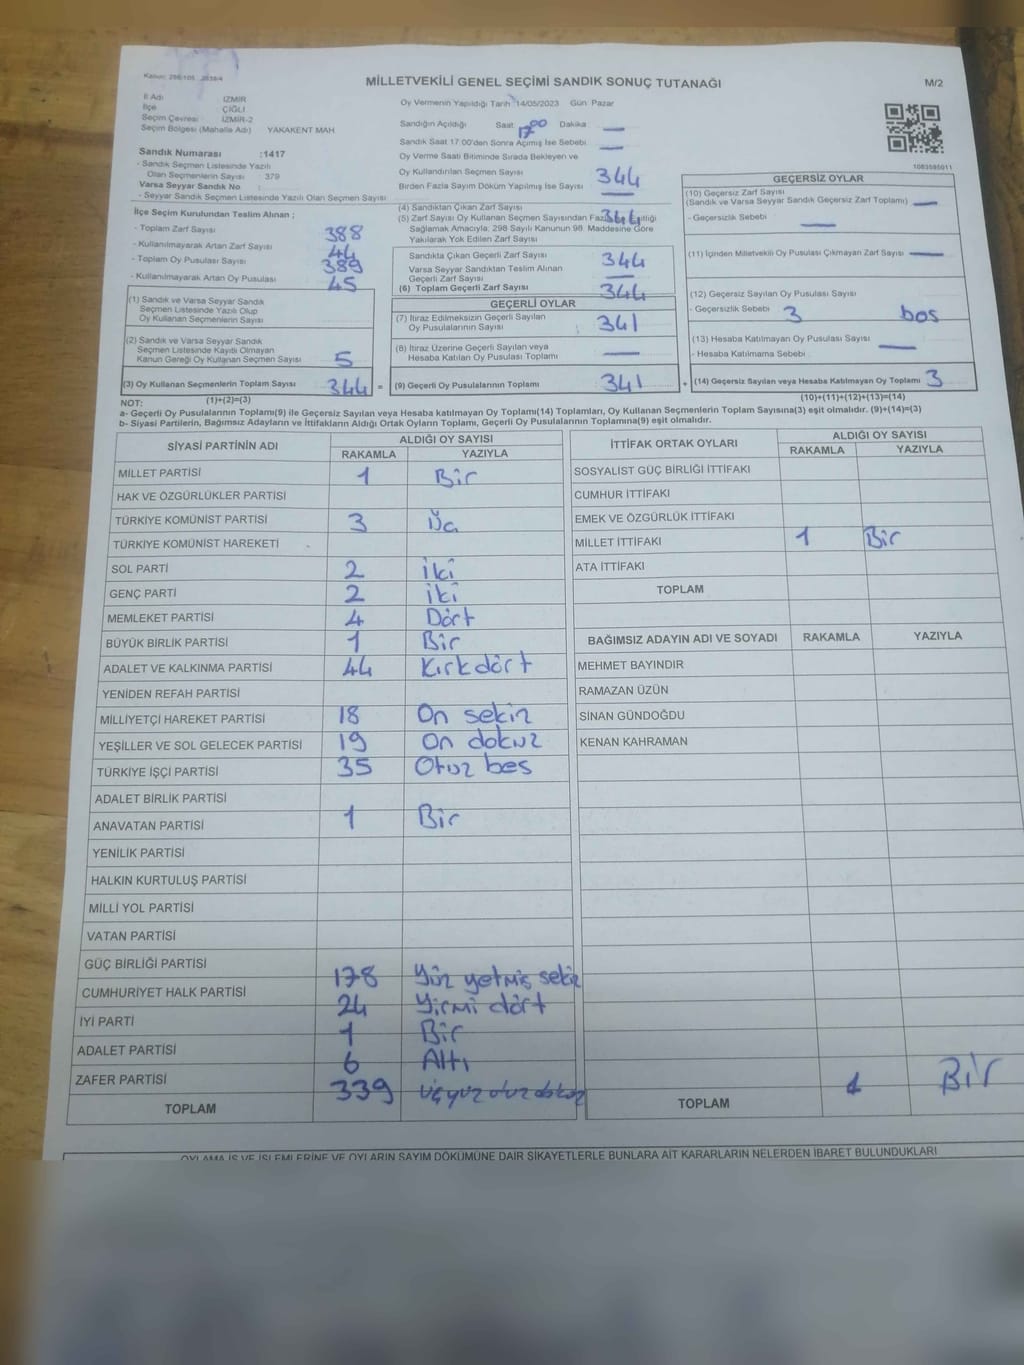 Kanun: 298/105 2839/4
MİLLETVEKİLİ GENEL SEÇİMİ SANDIK SONUÇ TUTANAĞI
M/2
İl Adı İZMİR
İlçe ÇİĞLİ
Seçim Çevresi İZMİR-2
Seçim Bölgesi (Mahalle Adı) YAKAKENT MAH
Sandık Numarası :1417
- Sandık Seçmen Listesinde Yazılı
Olan Seçmenlerin Sayısı 379
Varsa Seyyar Sandık No :
- Seyyar Sandık Seçmen Listesinde Yazılı Olan Seçmen Sayısı
İlçe Seçim Kurulundan Teslim Alınan ;
- Toplam Zarf Sayısı 388
- Kullanılmayarak Artan Zarf Sayısı 44
- Toplam Oy Pusulası Sayısı 389
- Kullanılmayarak Artan Oy Pusulası 45
(1) Sandık ve Varsa Seyyar Sandık
Seçmen Listesinde Yazılı Olup
Oy Kullanan Seçmenlerin Sayısı
(2) Sandık ve Varsa Seyyar Sandık
Seçmen Listesinde Kayıtlı Olmayan
Kanun Gereği Oy Kullanan Seçmen Sayısı 5
(3) Oy Kullanan Seçmenlerin Toplam Sayısı 344 =
Oy Vermenin Yapıldığı Tarih 14/05/2023 Gün Pazar
Sandığın Açıldığı Saat 17 00 Dakika —
Sandık Saat 17.00'den Sonra Açılmış İse Sebebi —
Oy Verme Saati Bitiminde Sırada Bekleyen ve
Oy Kullandırılan Seçmen Sayısı 344
Birden Fazla Sayım Döküm Yapılmış İse Sayısı —
(4) Sandıktan Çıkan Zarf Sayısı 344
(5) Zarf Sayısı Oy Kullanan Seçmen Sayısından Fazla
Sağlamak Amacıyla, 298 Sayılı Kanunun 98. Maddesine Göre
Yakılarak Yok Edilen Zarf Sayısı
Sandıkta Çıkan Geçerli Zarf Sayısı 344
Varsa Seyyar Sandıktan Teslim Alınan
Geçerli Zarf Sayısı —
(6) Toplam Geçerli Zarf Sayısı 344
GEÇERLİ OYLAR
(7) İtiraz Edilmeksizin Geçerli Sayılan
Oy Pusulalarının Sayısı 341
(8) İtiraz Üzerine Geçerli Sayılan veya
Hesaba Katılan Oy Pusulası Toplamı —
(9) Geçerli Oy Pusulalarının Toplamı 341 +
1083585011
GEÇERSİZ OYLAR
(10) Geçersiz Zarf Sayısı
(Sandık ve Varsa Seyyar Sandık Geçersiz Zarf Toplamı) —
- Geçersizlik Sebebi —
(11) İçinden Milletvekili Oy Pusulası Çıkmayan Zarf Sayısı —
(12) Geçersiz Sayılan Oy Pusulası Sayısı
- Geçersizlik Sebebi 3 bos
(13) Hesaba Katılmayan Oy Pusulası Sayısı —
- Hesaba Katılmama Sebebi
(14) Geçersiz Sayılan veya Hesaba Katılmayan Oy Toplamı 3
NOT: (1)+(2)=(3) (10)+(11)+(12)+(13)=(14)
a- Geçerli Oy Pusulalarının Toplamı(9) ile Geçersiz Sayılan veya Hesaba katılmayan Oy Toplamı(14) Toplamları, Oy Kullanan Seçmenlerin Toplam Sayısına(3) eşit olmalıdır. (9)+(14)=(3)
b- Siyasi Partilerin, Bağımsız Adayların ve İttifakların Aldığı Ortak Oyların Toplamı, Geçerli Oy Pusulalarının Toplamına(9) eşit olmalıdır.
SİYASİ PARTİNİN ADI ALDIĞI OY SAYISI
RAKAMLA YAZIYLA
MİLLET PARTİSİ 1 Bir
HAK VE ÖZGÜRLÜKLER PARTİSİ
TÜRKİYE KOMÜNİST PARTİSİ 3
TÜRKİYE KOMÜNİST HAREKETİ
SOL PARTİ 2 İki
GENÇ PARTİ 2 İki
MEMLEKET PARTİSİ 4 Dört
BÜYÜK BİRLİK PARTİSİ 1 Bir
ADALET VE KALKINMA PARTİSİ 44 Kırkdört
YENİDEN REFAH PARTİSİ
MİLLİYETÇİ HAREKET PARTİSİ 18 On sekiz
YEŞİLLER VE SOL GELECEK PARTİSİ 19 On dokuz
TÜRKİYE İŞÇİ PARTİSİ 35 Otuz bes
ADALET BİRLİK PARTİSİ
ANAVATAN PARTİSİ 1 Bir
YENİLİK PARTİSİ
HALKIN KURTULUŞ PARTİSİ
MİLLİ YOL PARTİSİ
VATAN PARTİSİ
GÜÇ BİRLİĞİ PARTİSİ
CUMHURİYET HALK PARTİSİ 178 Yüz yetmiş sekiz
İYİ PARTİ 24 Yirmi dört
ADALET PARTİSİ 1 Bir
ZAFER PARTİSİ 6 Altı
TOPLAM 339 üçyüz otuz dokuz
İTTİFAK ORTAK OYLARI ALDIĞI OY SAYISI
RAKAMLA YAZIYLA
SOSYALİST GÜÇ BİRLİĞİ İTTİFAKI
CUMHUR İTTİFAKI
EMEK VE ÖZGÜRLÜK İTTİFAKI
MİLLET İTTİFAKI 1 Bir
ATA İTTİFAKI
TOPLAM
BAĞIMSIZ ADAYIN ADI VE SOYADI RAKAMLA YAZIYLA
MEHMET BAYINDIR
RAMAZAN ÜZÜN
SİNAN GÜNDOĞDU
KENAN KAHRAMAN
TOPLAM 1 Bir
OYLAMA İŞ VE İŞLEMLERİNE VE OYLARIN SAYIM DÖKÜMÜNE DAİR ŞİKAYETLERLE BUNLARA AİT KARARLARIN NELERDEN İBARET BULUNDUKLARI